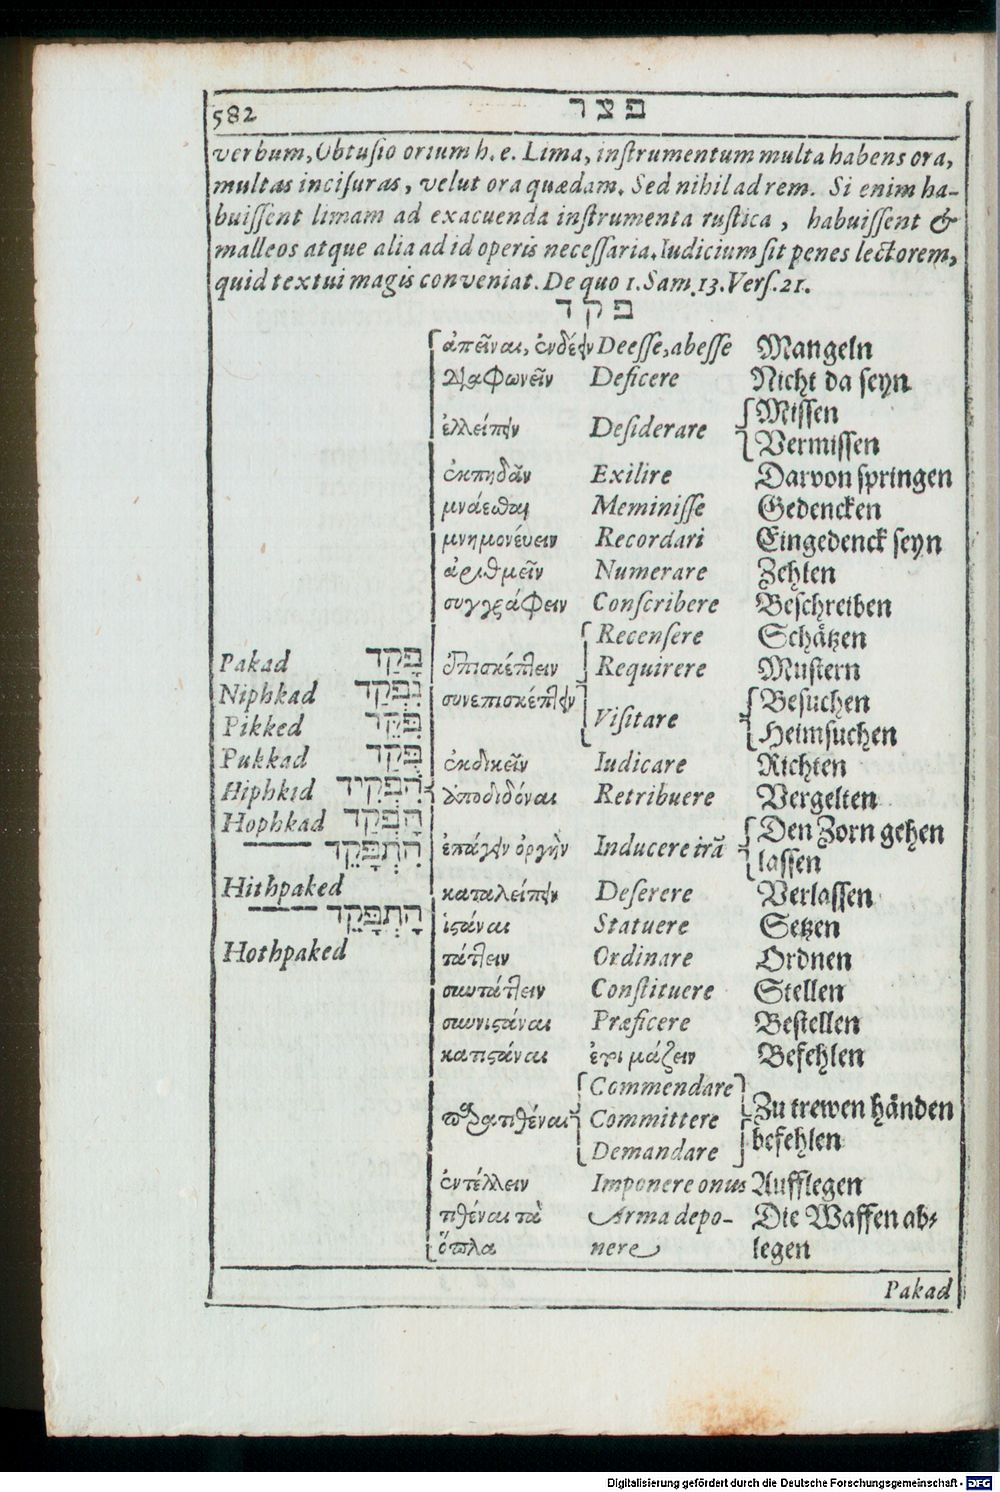 582 פצר
verbum, Obtusio orium h. e. Lima, instrumentum multa habens ora,
multas incisuras, velut ora quædam. Sed nihil ad rem. Si enim ha-
buissent limam ad exacuenda instrumenta rustica, habuissent &
malleos atque alia ad id operis necessaria. Iudicium sit penes lectorem,
quid textui magis conveniat. De quo 1. Sam. 13. Vers. 21.
פקד
ἀπεῖναι, ἐνδέειν Deesse, abesse Mangeln
διαφωνεῖν Deficere Nicht da seyn
ἐλλείπειν Desiderare Missen
Vermissen
ἐκπηδᾶν Exilire Darvon springen
μνάεσθαι Meminisse Gedencken
μνημονέυειν Recordari Eingedenck seyn
ἀριθμεῖν Numerare Zehlen
συγγράφειν Conscribere Beschreiben
Recensere Schätzen
Pakad פָּקַד ἐπισκέπτειν Requirere Mustern
Niphkad נִפְקַד συνεπισκέπτειν Visitare Besuchen
Pikked פִּקֵּד Heimsuchen
Pukkad פֻּקַּד ἐκδικεῖν Iudicare Richten
Hiphkid הִפְקִיד ἀποδιδόναι Retribuere Vergelten
Hophkad הָפְקַד ἐπάγειν ὀργὴν Inducere irã Den Zorn gehen
הִתְפַּקֵּד lassen
Hithpaked καταλείπειν Deserere Verlassen
הָתְפָּקֵד ἱστάναι Statuere Setzen
Hothpaked τάττειν Ordinare Ordnen
συντάττειν Constituere Stellen
συνιστάναι Præficere Bestellen
καθιστάναι ἐτι μάζειν Befehlen
Commendare
παρατιθέναι Committere Zu trewen händen
Demandare befehlen
ἐντέλλειν Imponere onus Aufflegen
τιθέναι τὰ Arma depo- Die Waffen ab-
ὅπλα nere legen
Pakad
Digitalisierung gefördert durch die Deutsche Forschungsgemeinschaft - DFG